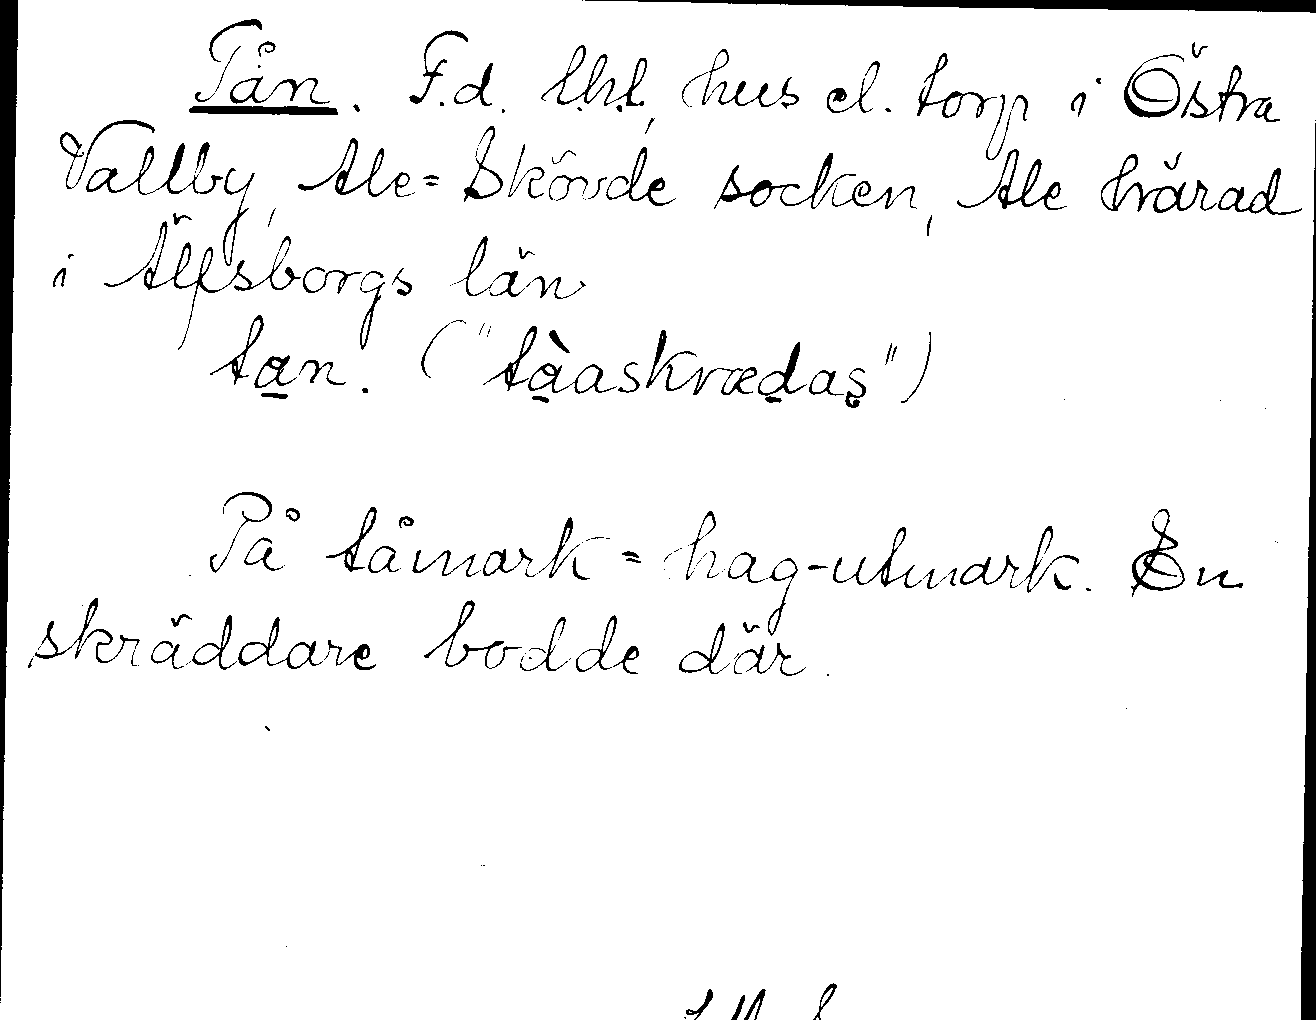 Tån. F.d. lht, hus el. torp i Östra
Vallby, Ale=Skövde socken, Ale härad
i Älfsborgs län
ta̲n. ("tà̲askræd̲as̥")
På tåmark = hag-utmark. En
skräddare bodde där.